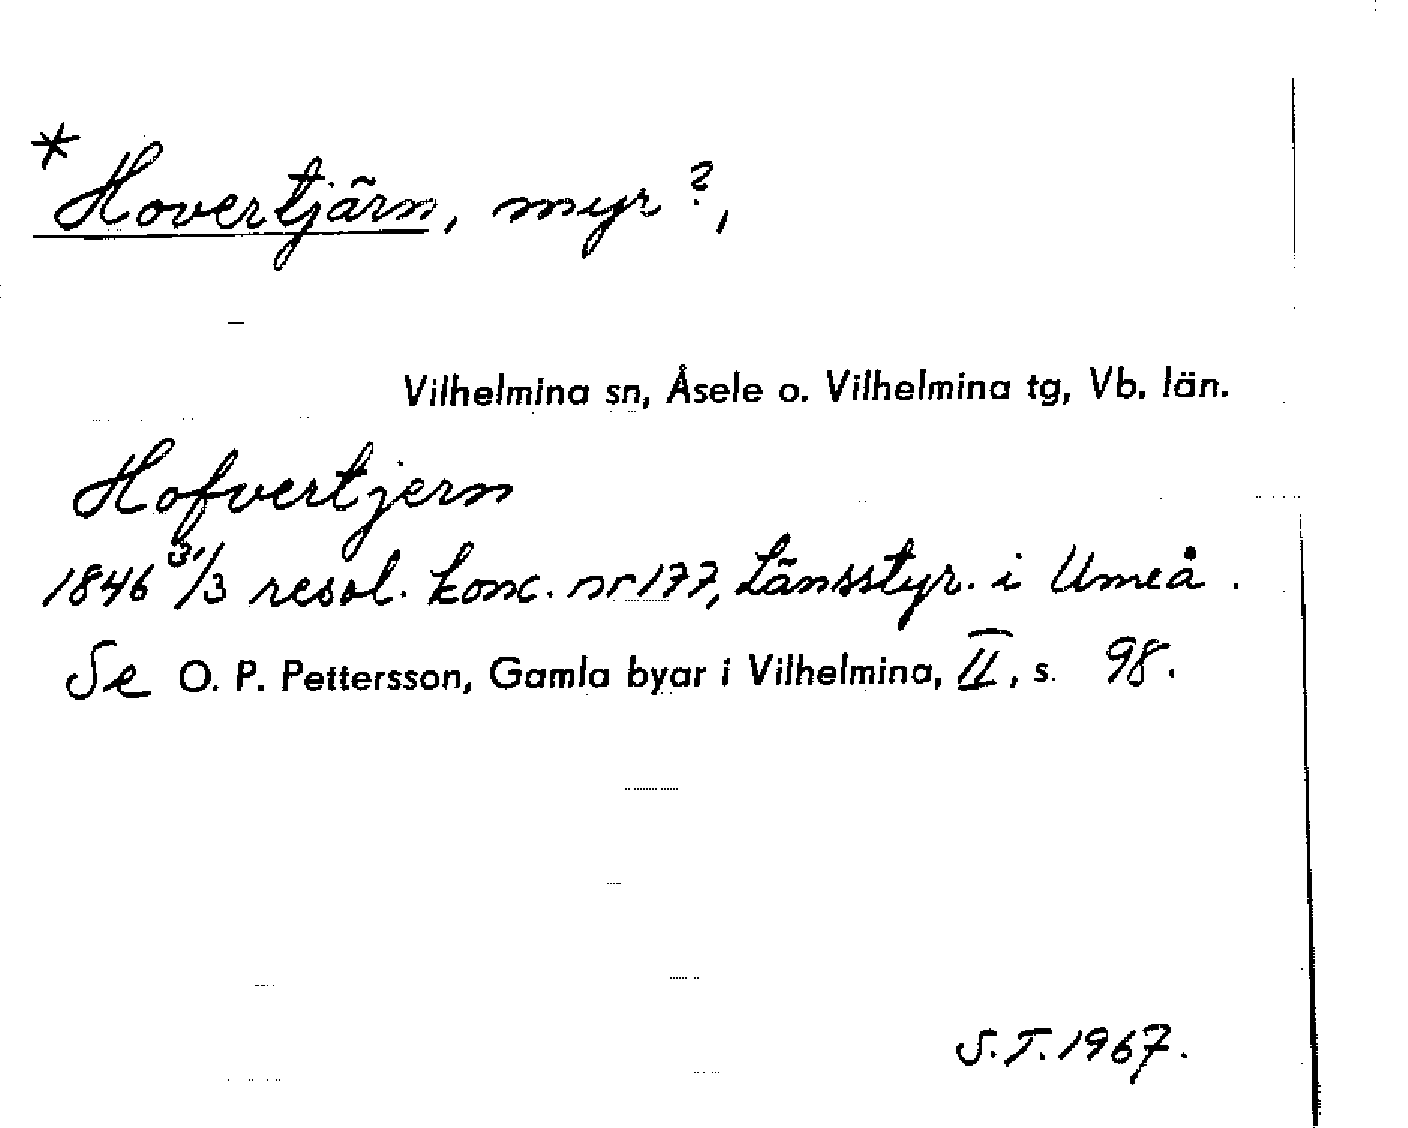 * Hovertjärn, myr?,
Vilhelmina sn, Åsele o. Vilhelmina tg, Vb. län.
Hofvertjern
1846 31/3 resol. konc. nr 177, Länsstyr. i Umeå.
Se O. P. Pettersson, Gamla byar i Vilhelmina, II, s. 98.
S.T. 1967.